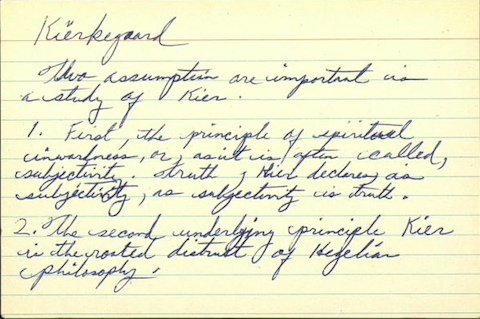 Kierkegaard
Two assumption are important in
a study of Kier.
1. First, the principle of spiritual
inwardness, or, as it is often called,
subjectivity. Truth, Kier declares, as
subjectivity, as subjectivity is truth.
2. The second underlying principle Kier
is the rooted distrust of Hegelian
philosophy.